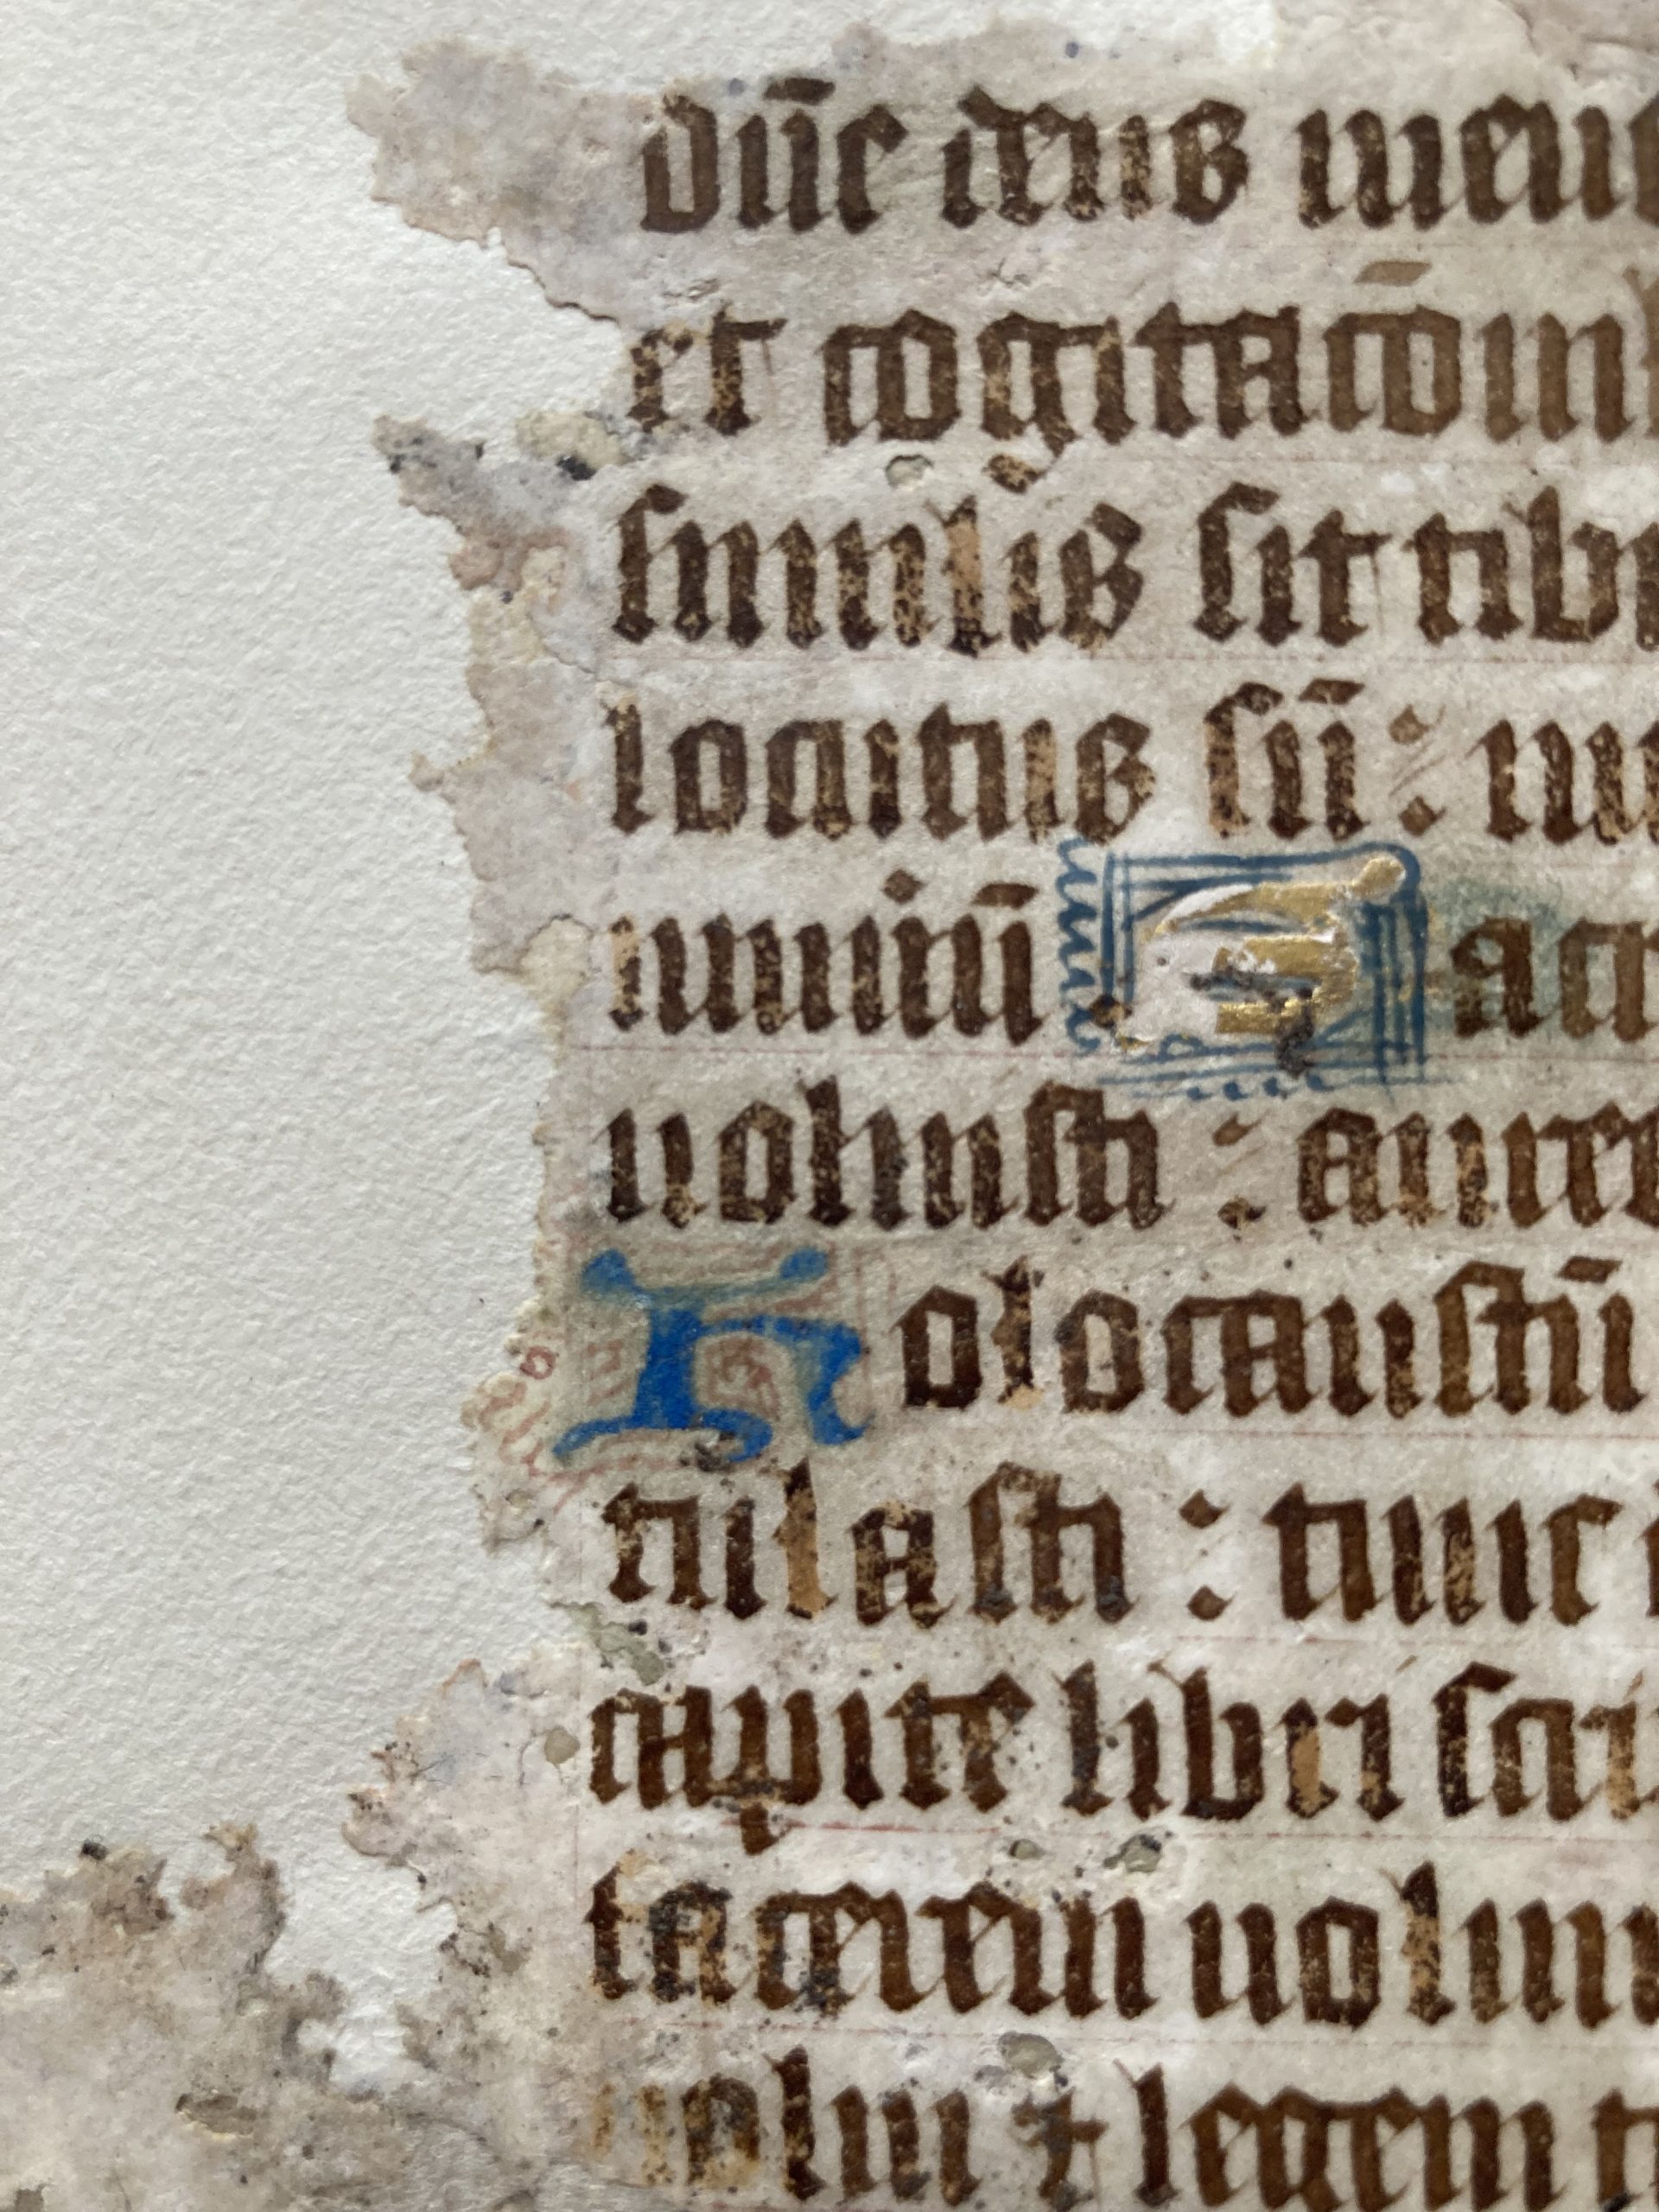 dñe deus meus
et cogitac̄oīnb
similis sit tibi
locutus sū : mu
numerū S acri
noluisti : aures
Holocaustū
tulasti : tunc
capite libri scri
facerem uolun
uolui ⁊ legem t